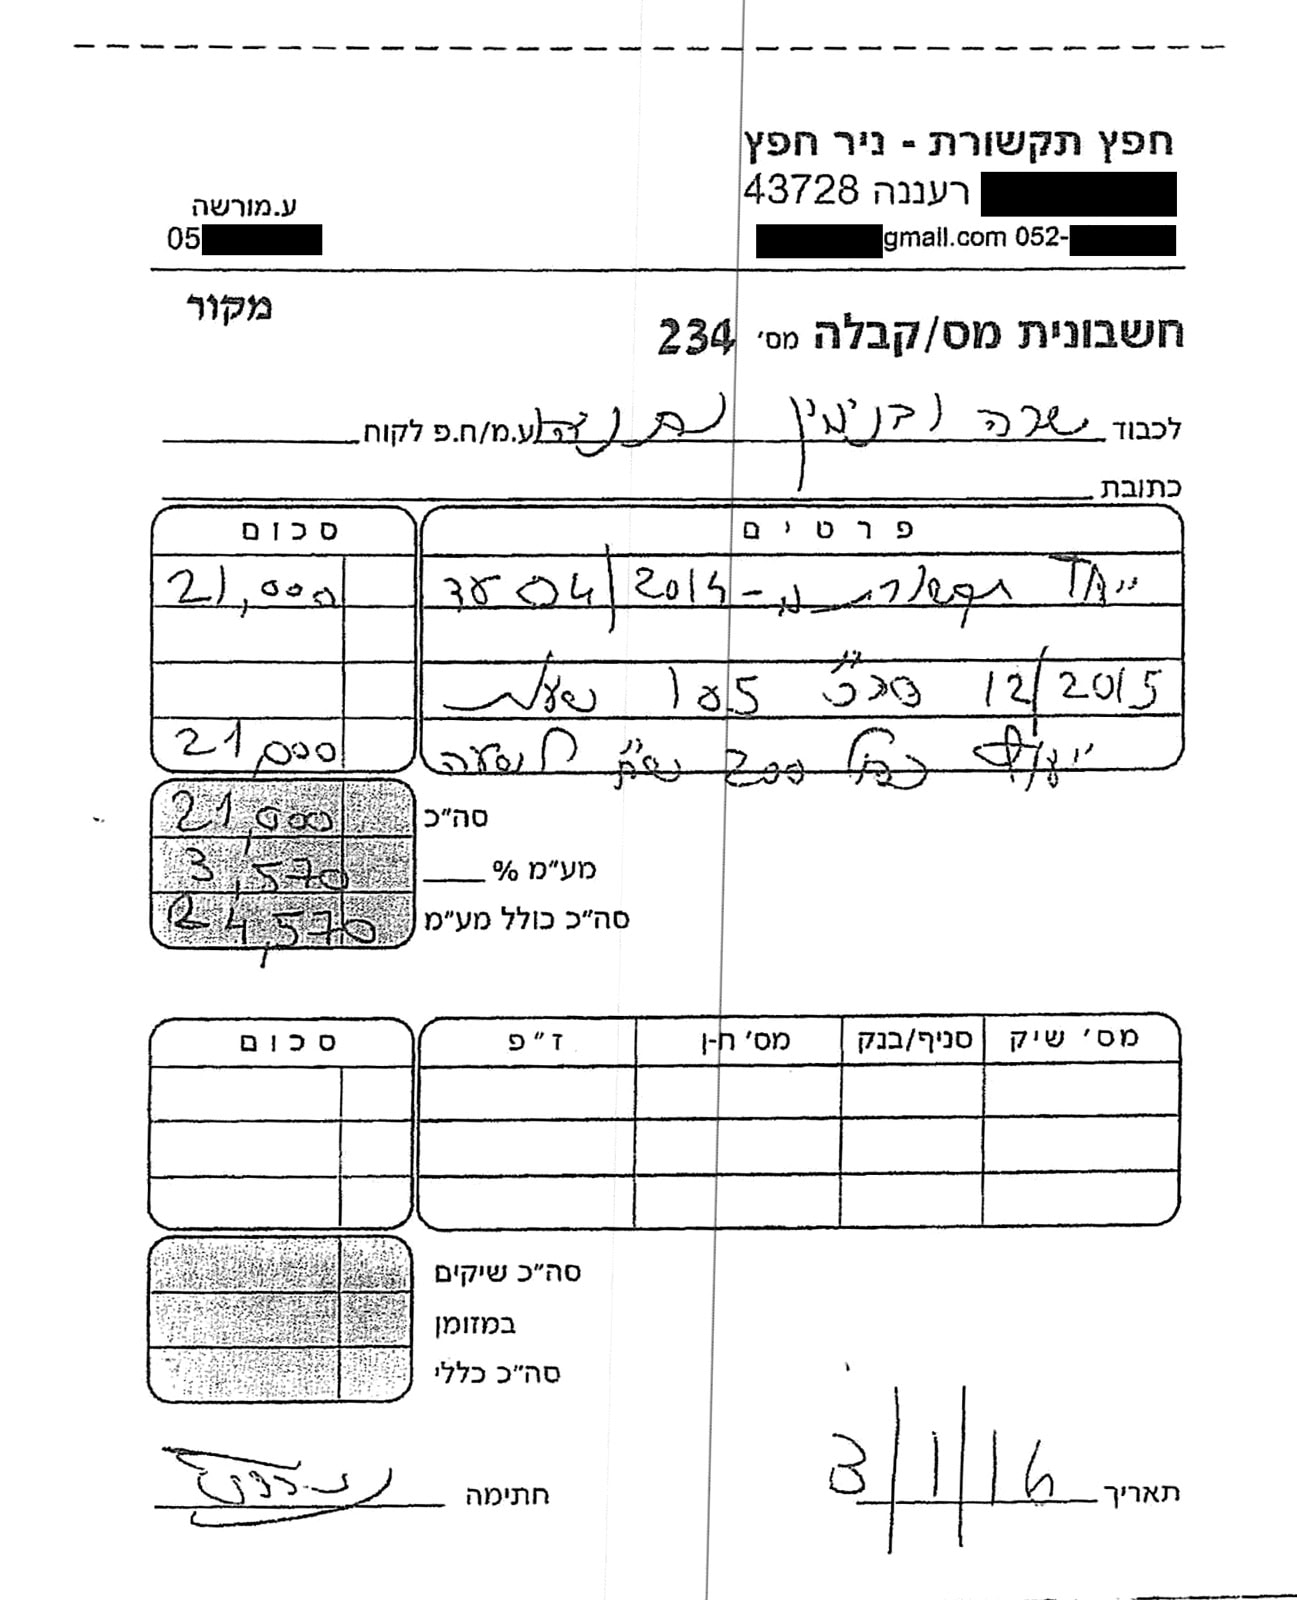 חפץ תקשורת - ניר חפץ
רעננה 43728
gmail.com 052-
ע.מורשה
05
מקור
חשבונית מס/קבלה מס׳ 234
לכבוד שרה ובנימין נתניהו ע.מ/ח.פ לקוח
כתובת
פרטים סכום
ייעוץ תקשורתי מ- 04/2014 עד 21,000
12/2015 סה״כ 105 שעות
ייעוץ לפי 200 ש״ח לשעה 21,000
סה״כ 21,000
מע״מ % 3,570
סה״כ כולל מע״מ 24,570
מס׳ שיק סניף/בנק מס׳ ח-ן ז״פ סכום
סה״כ שיקים
במזומן
סה״כ כללי
תאריך 3/1/16
חתימה